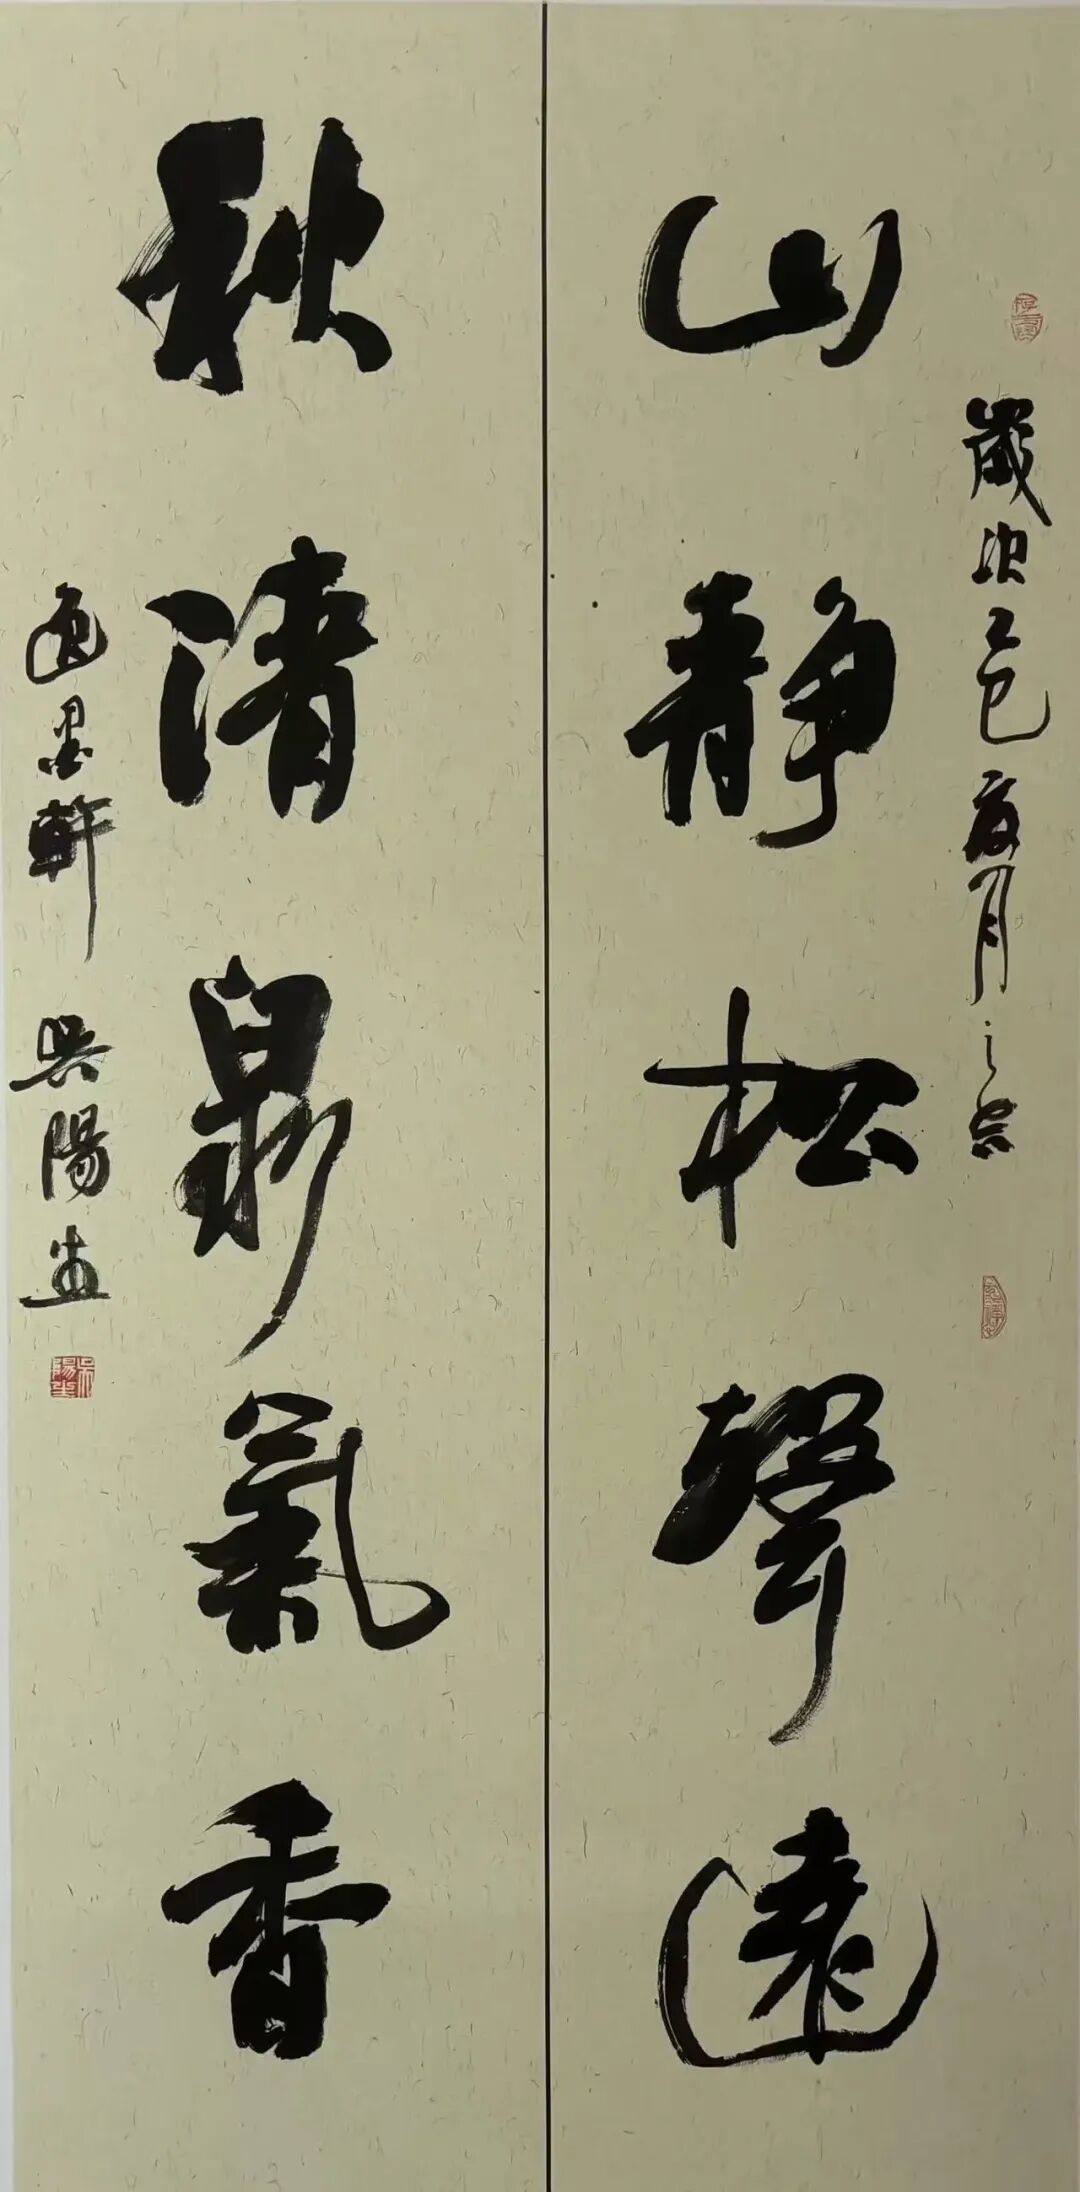 歲次乙巳夏月之吉
山靜松聲遠
秋清泉氣香
逸墨軒 吳陽生